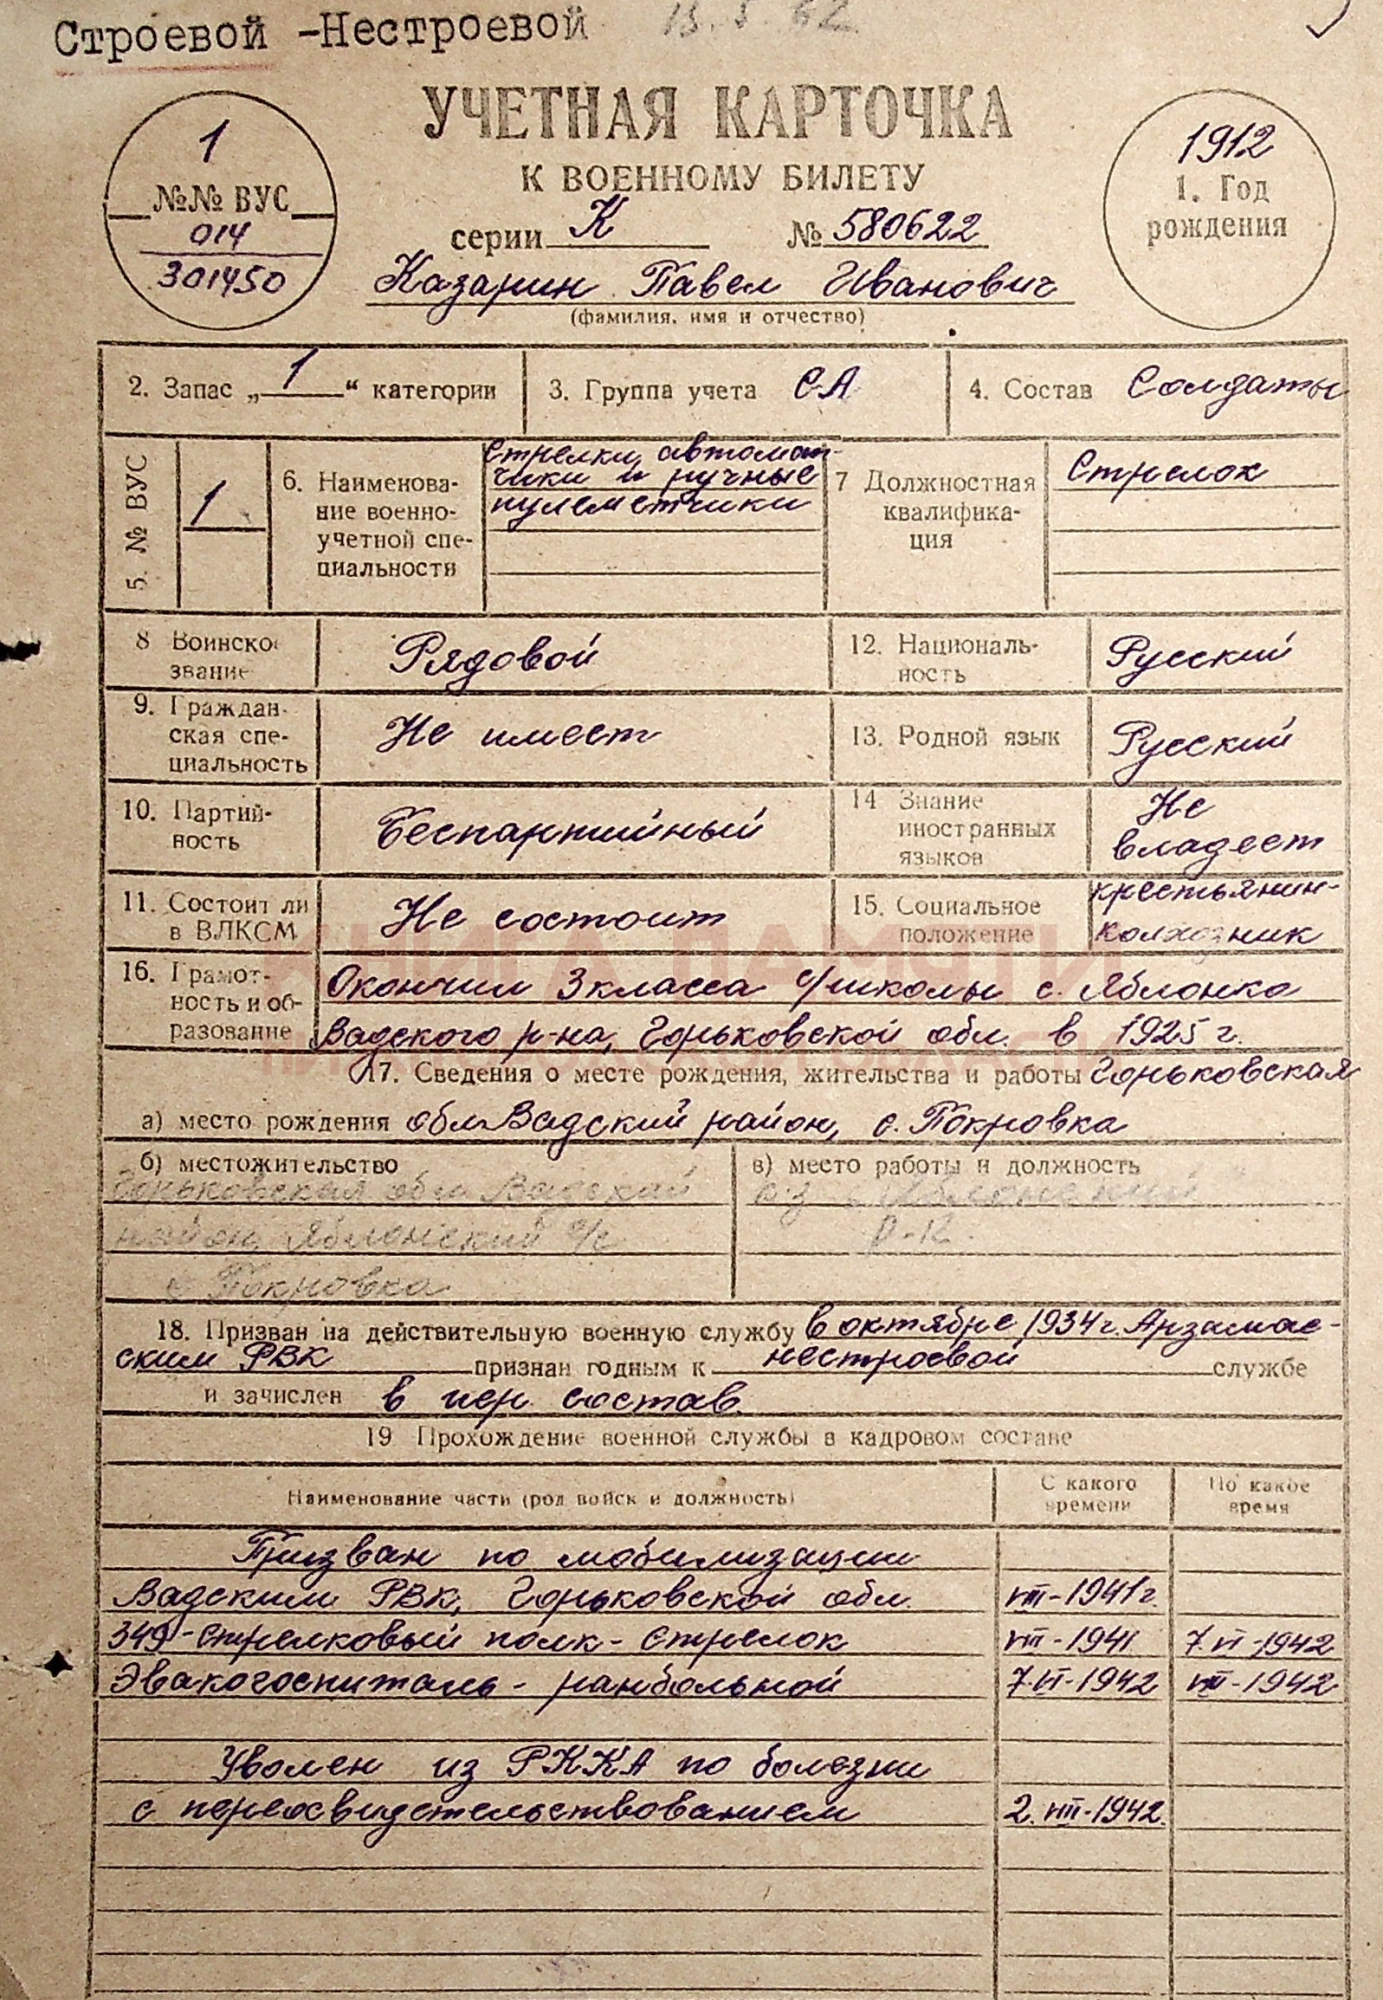 Строевой -Нестроевой 13.5.62
УЧЕТНАЯ КАРТОЧКА
К ВОЕННОМУ БИЛЕТУ
серии К № 580622
1
№№ ВУС
014
301450
1912
1. Год
рождения
Казарин Павел Иванович
(фамилия, имя и отчество)
2. Запас „1“ категории
3. Группа учета СА
4. Состав Солдаты
5. № ВУС
1
6. Наименова-
ние военно-
учетной спе-
циальности
Стрелки, автомат-
чики и ручные
пулеметчики
7 Должностная
квалифика-
ция
Стрелок
8 Воинское
звание
Рядовой
12. Националь-
ность
Русский
9. Граждан-
ская спе-
циальность
Не имеет
13. Родной язык
Русский
10. Партий-
ность
Беспартийный
14 Знание
иностранных
языков
Не
владеет
11. Состоит ли
в ВЛКСМ
Не состоит
15. Социальное
положение
крестьянин-
колхозник
16. Грамот-
ность и об-
разование
Окончил 3 класса с/школы с. Яблонка
Вадского р-на, Горьковской обл. в 1925 г.
КНИГА ПАМЯТИ
17. Сведения о месте рождения, жительства и работы Горьковская
а) место рождения обл Вадский район, с. Покровка
б) местожительство
Горьковская обл Вадский
район, Яблонский с/с
с Покровка
в) место работы и должность
к-з Яблонский
р-к.
18. Призван на действительную военную службу в октябре 1934 г. Арзамас-
ским РВК признан годным к нестроевой службе
и зачислен в пер. состав.
19 Прохождение военной службы в кадровом составе
Наименование части (род войск и должность)
С какого
времени
По какое
время
Призван по мобилизации
Вадским РВК, Горьковской обл. VIII-1941 г.
349-Стрелковый полк - Стрелок VIII-1941 7.VI-1942
Эвакогоспиталь - ранбольной 7.VI-1942 VIII-1942
Уволен из РККА по болезни
с переосвидетельствованием 2.VIII-1942.